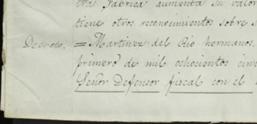 tra fabrica aumenta su valor
tiene otros reconocimientos sobre s
Decreto. = Martinez del Rio hermanos.
primero de mil ochocientos cin
Señor Defensor fiscal con el